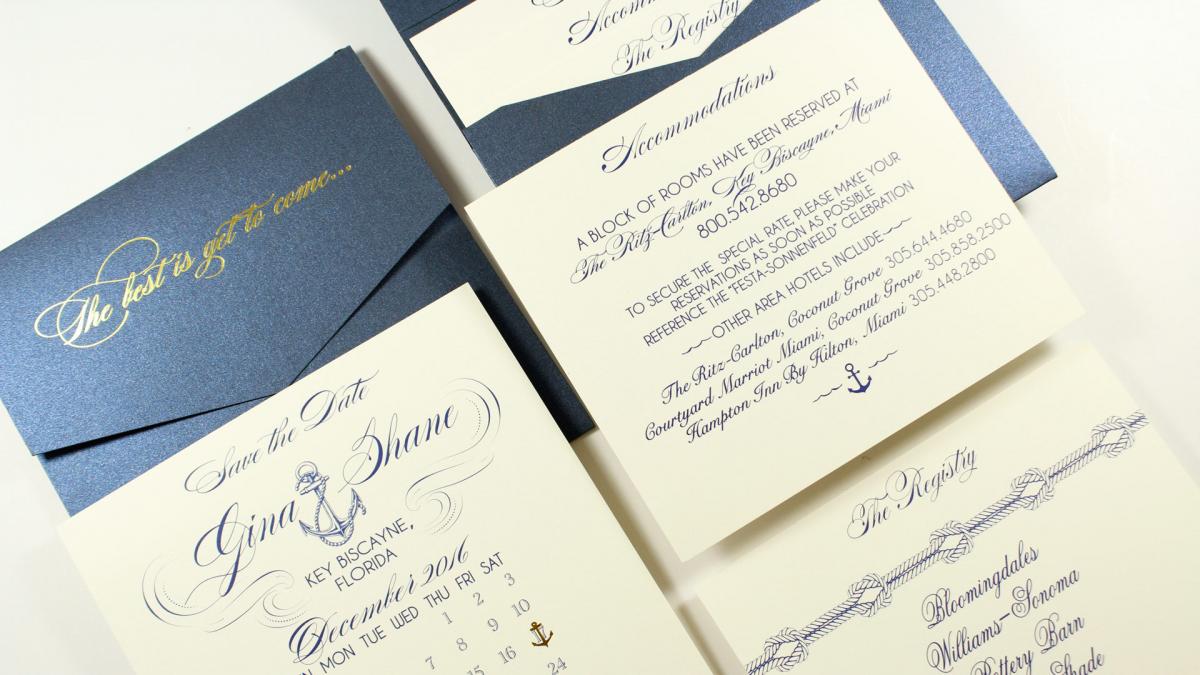 The best is yet to come...
Accommodations
The Registry
Accommodations
A BLOCK OF ROOMS HAVE BEEN RESERVED AT
The Ritz-Carlton, Key Biscayne, Miami
800.542.8680
TO SECURE THE SPECIAL RATE, PLEASE MAKE YOUR
RESERVATIONS AS SOON AS POSSIBLE
REFERENCE THE "FESTA-SONNENFELD" CELEBRATION
OTHER AREA HOTELS INCLUDE
The Ritz-Carlton, Coconut Grove 305.644.4680
Courtyard Marriot Miami, Coconut Grove 305.858.2500
Hampton Inn By Hilton, Miami 305.448.2800
Save the Date
Gina Shane
KEY BISCAYNE,
FLORIDA
December 2016
MON TUE WED THU FRI SAT
1 2 3
7 8 9 10
16
24
The Registry
Bloomingdales
Williams-Sonoma
Pottery Barn